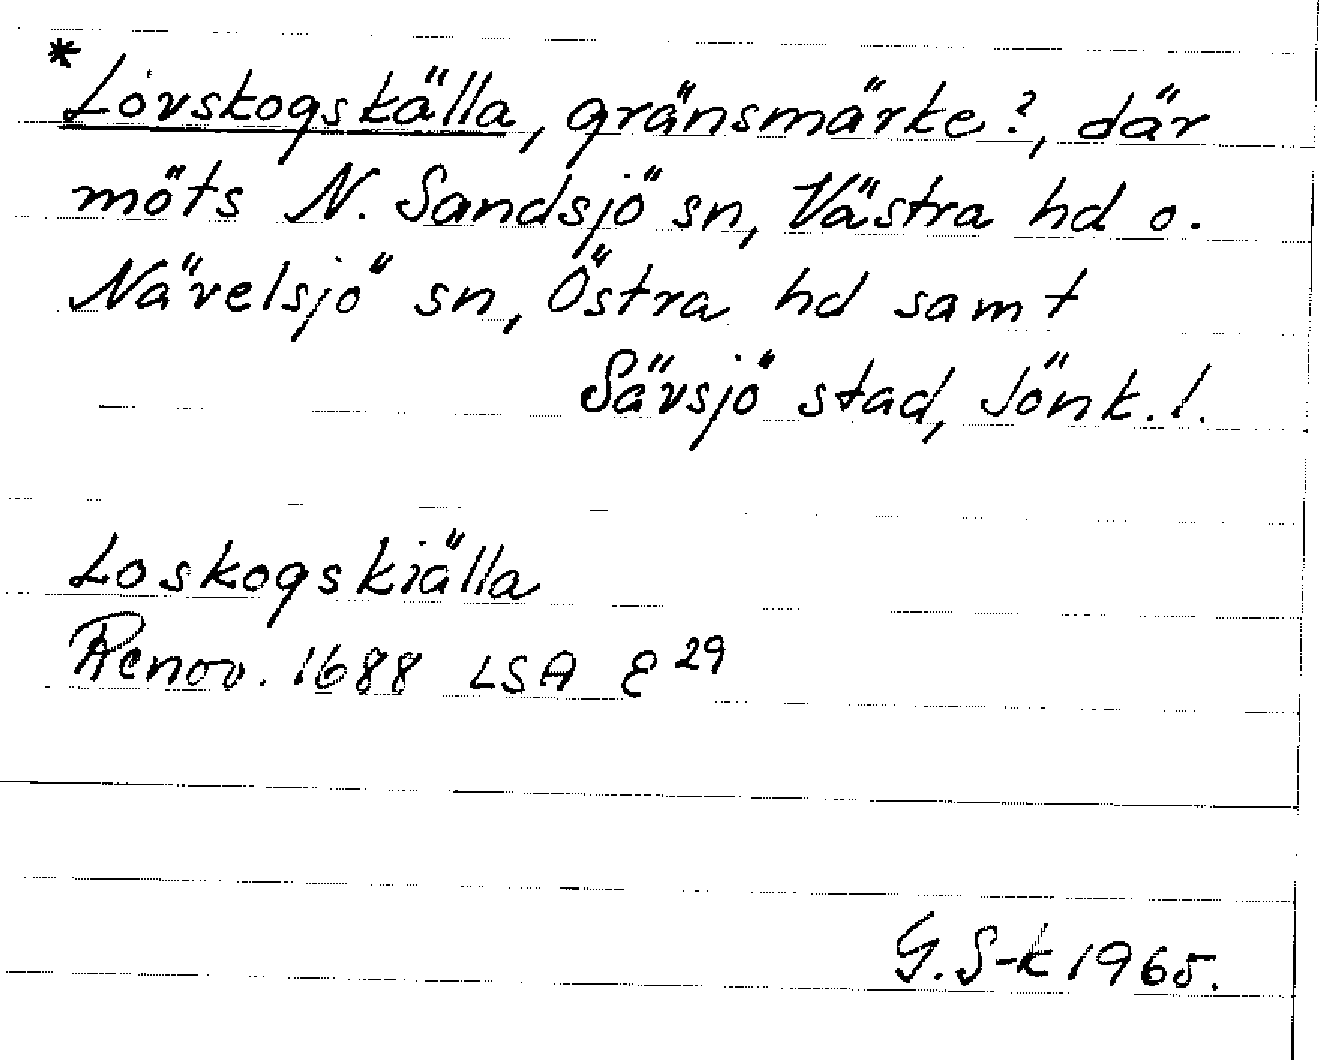 *Lövskogskälla, gränsmärke?, där
möts N. Sandsjö sn, Västra hd o.
Nävelsjö sn, Östra hd samt
Sävsjö stad, Jönk. l.
Loskogskiälla
Renov. 1688 LSA E 29
G. S-k 1965.